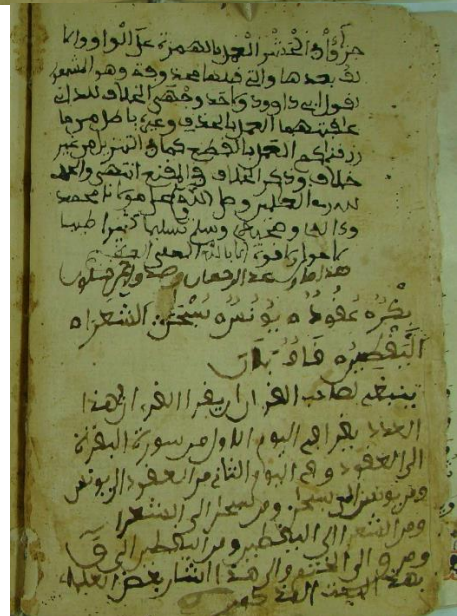 جزؤا الحشر العمل بالهمزة على الواو والا
لف بعدها والتي قبلها محذوفة وهو المشهور
لقول ابي داوود وواحد وجهي الخلاف للداني
العمل بالحذف وغيره باطل من ما
رزقناكم العمل بالقطع كما في التنزيل من غير
خلاف وذكر الخلاف في المقنع انتهى والحمد
لله رب العلمين وصلى الله على مولانا محمد
وءاله وصحبه وسلم تسليما كثيرا طيبا
لا حول ولا قوة الا بالله العلي العظيم
بكره عقوده يونسه سبحن الشعراه
اليقطيره قاف
ينبغي لصاحب القرءان ان يقرا القرءان لهذا
العدد يقرا في اليوم الاول من سورة البقرة
الى العقود وفي اليوم الثاني من العقود الى يونس
ومن يونس الى سبحن ومن سبحن الى الشعرا
ومن الشعرا الى اليقطين ومن اليقطين الى ق
ومن ق الى الختم والى هذا اشار بعض العلماء
بهذا البيت المذكور